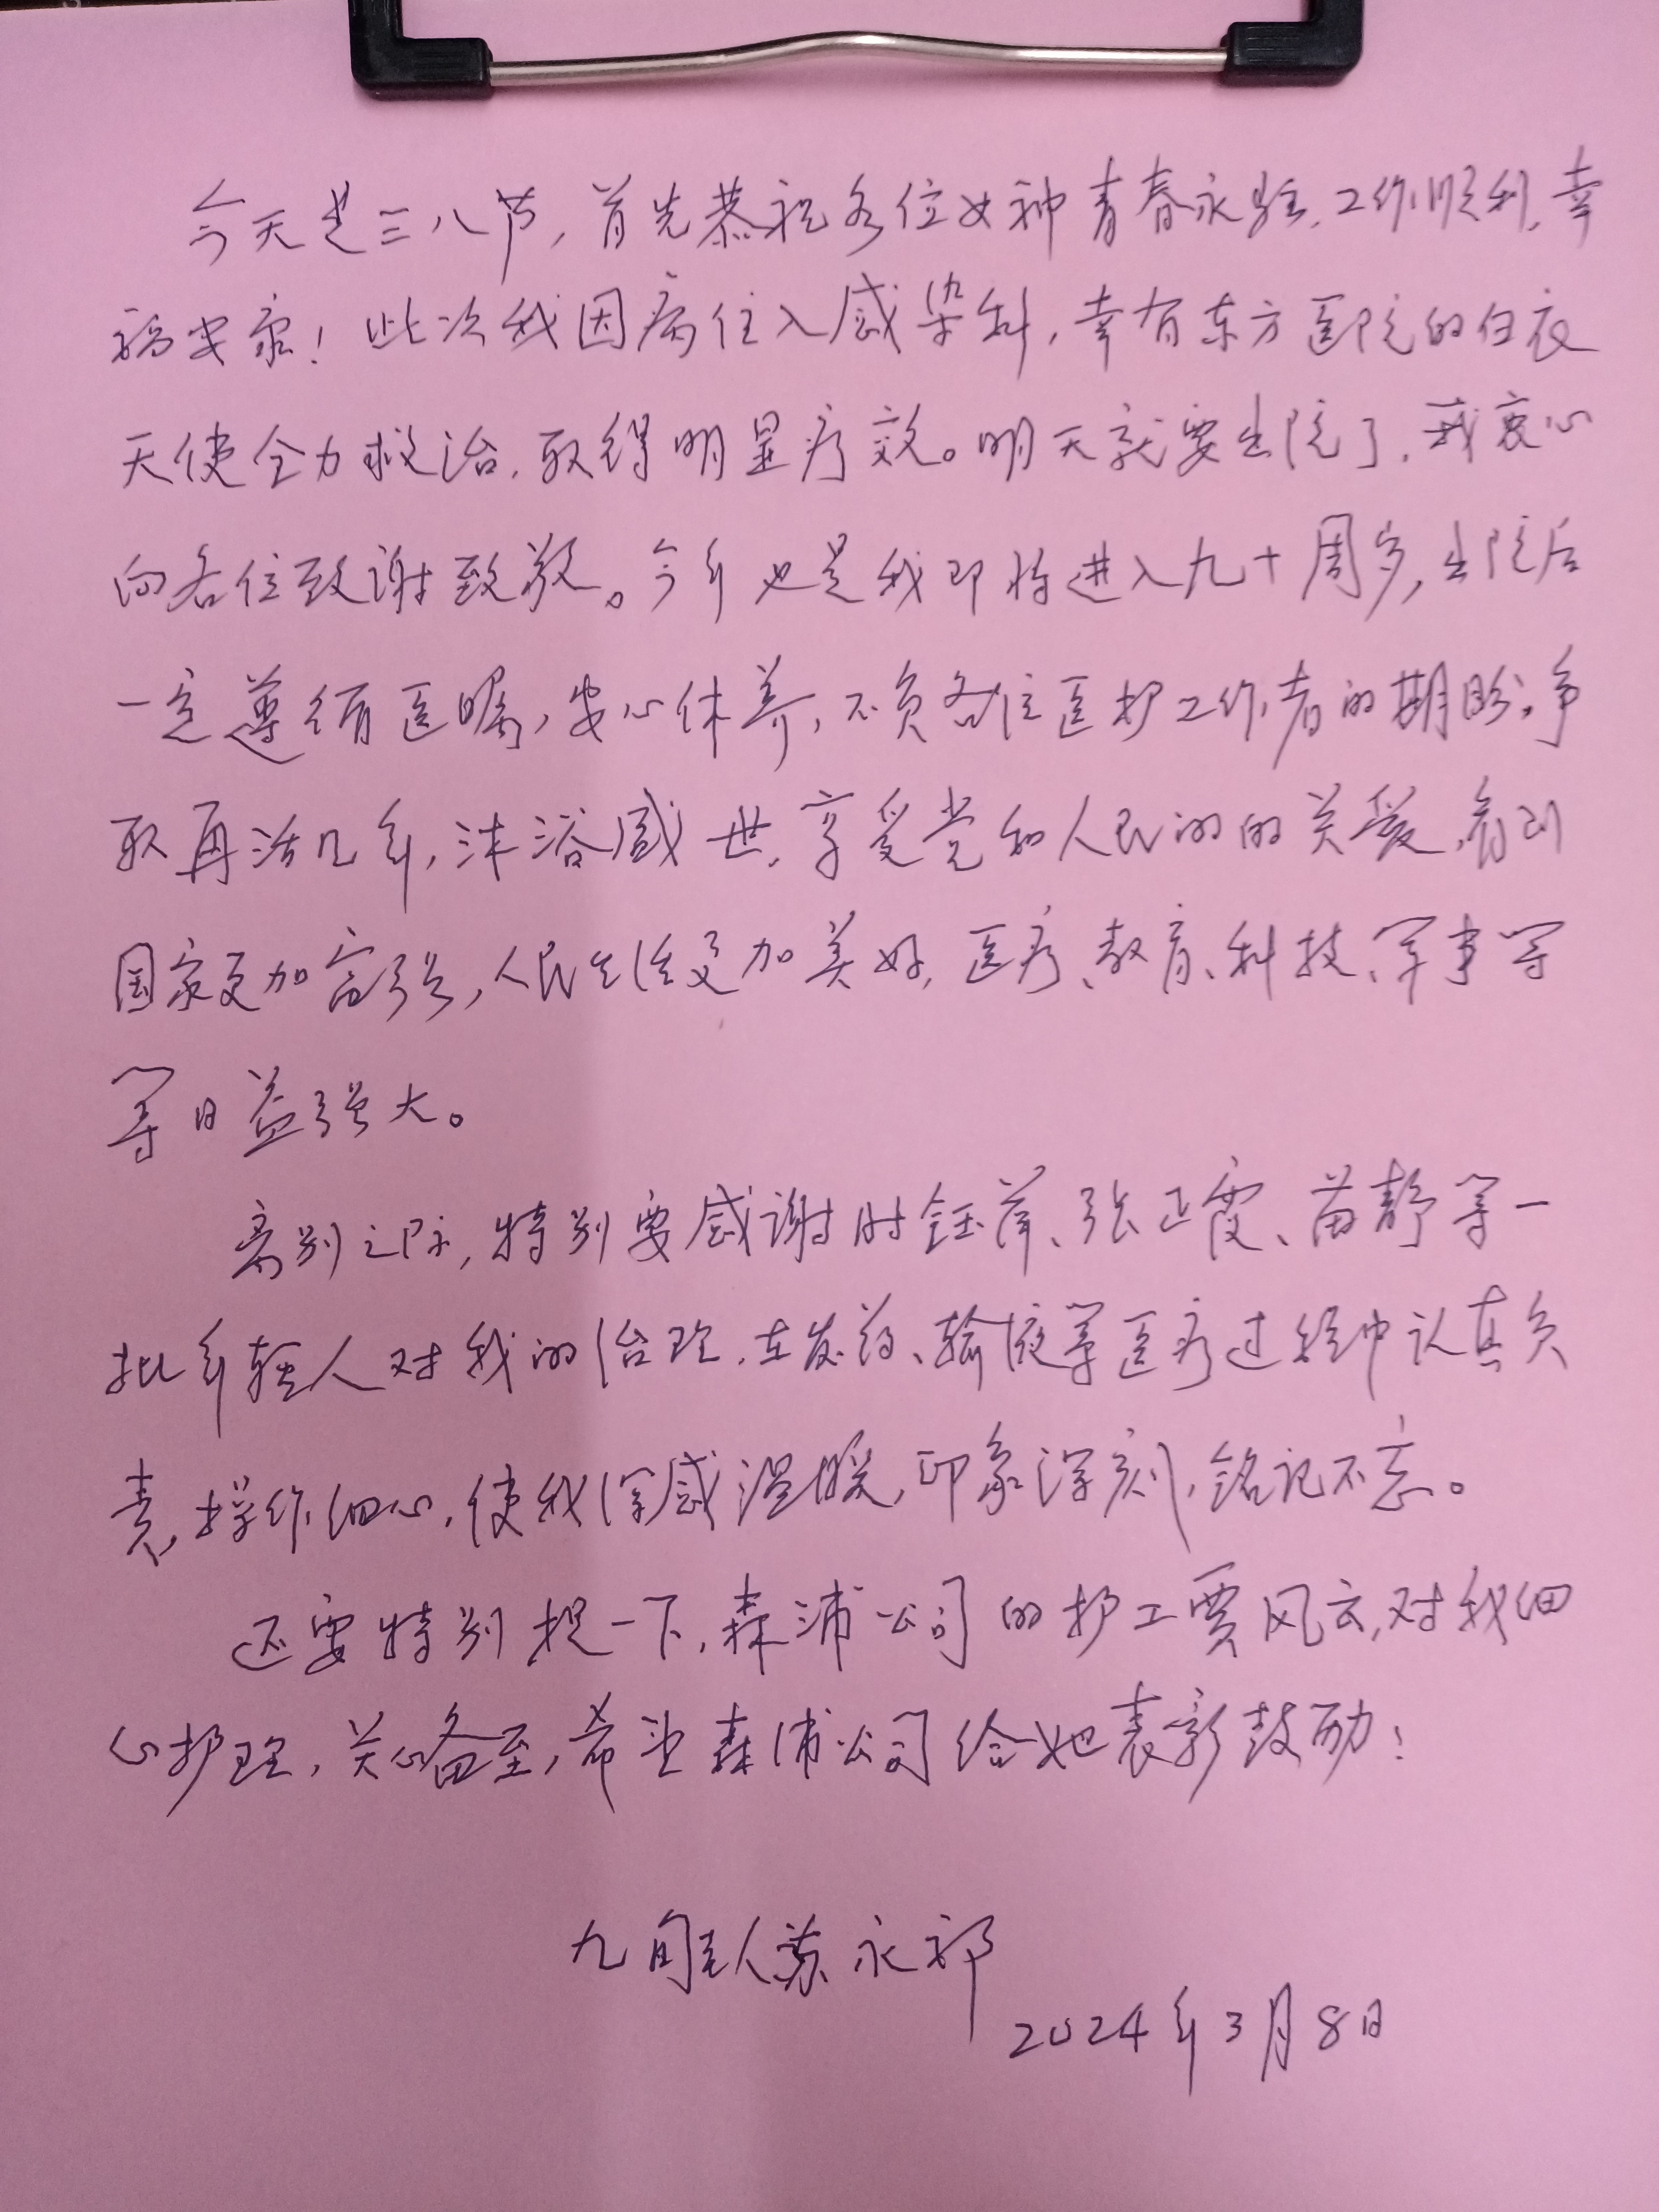 今天是三八节,首先恭祝各位女神青春永驻,工作顺利,幸
福安康!此次我因病住入感染科,幸有东方医院的白衣
天使全力救治,取得明显疗效。明天就要出院了,我衷心
向各位致谢致敬。今年也是我即将进入九十周岁,出院后
一定遵循医嘱,安心休养,不负各位医护工作者的期盼,争
取再活几年,沐浴盛世,享受党和人民的的关爱,看到
国家更加富强,人民生活更加美好,医疗、教育、科技、军事等
等日益强大。
离别之际,特别要感谢时钰萍、张正霞、苗静等一
批年轻人对我的治理,在发药、输液等医疗过程中认真负
责,操作细心,使我深感温暖,印象深刻,铭记不忘。
还要特别提一下,森浦公司的护工贾风云,对我细
心护理,关心备至,希望森浦公司给她表彰鼓励!
九旬老人苏永祁
2024年3月8日